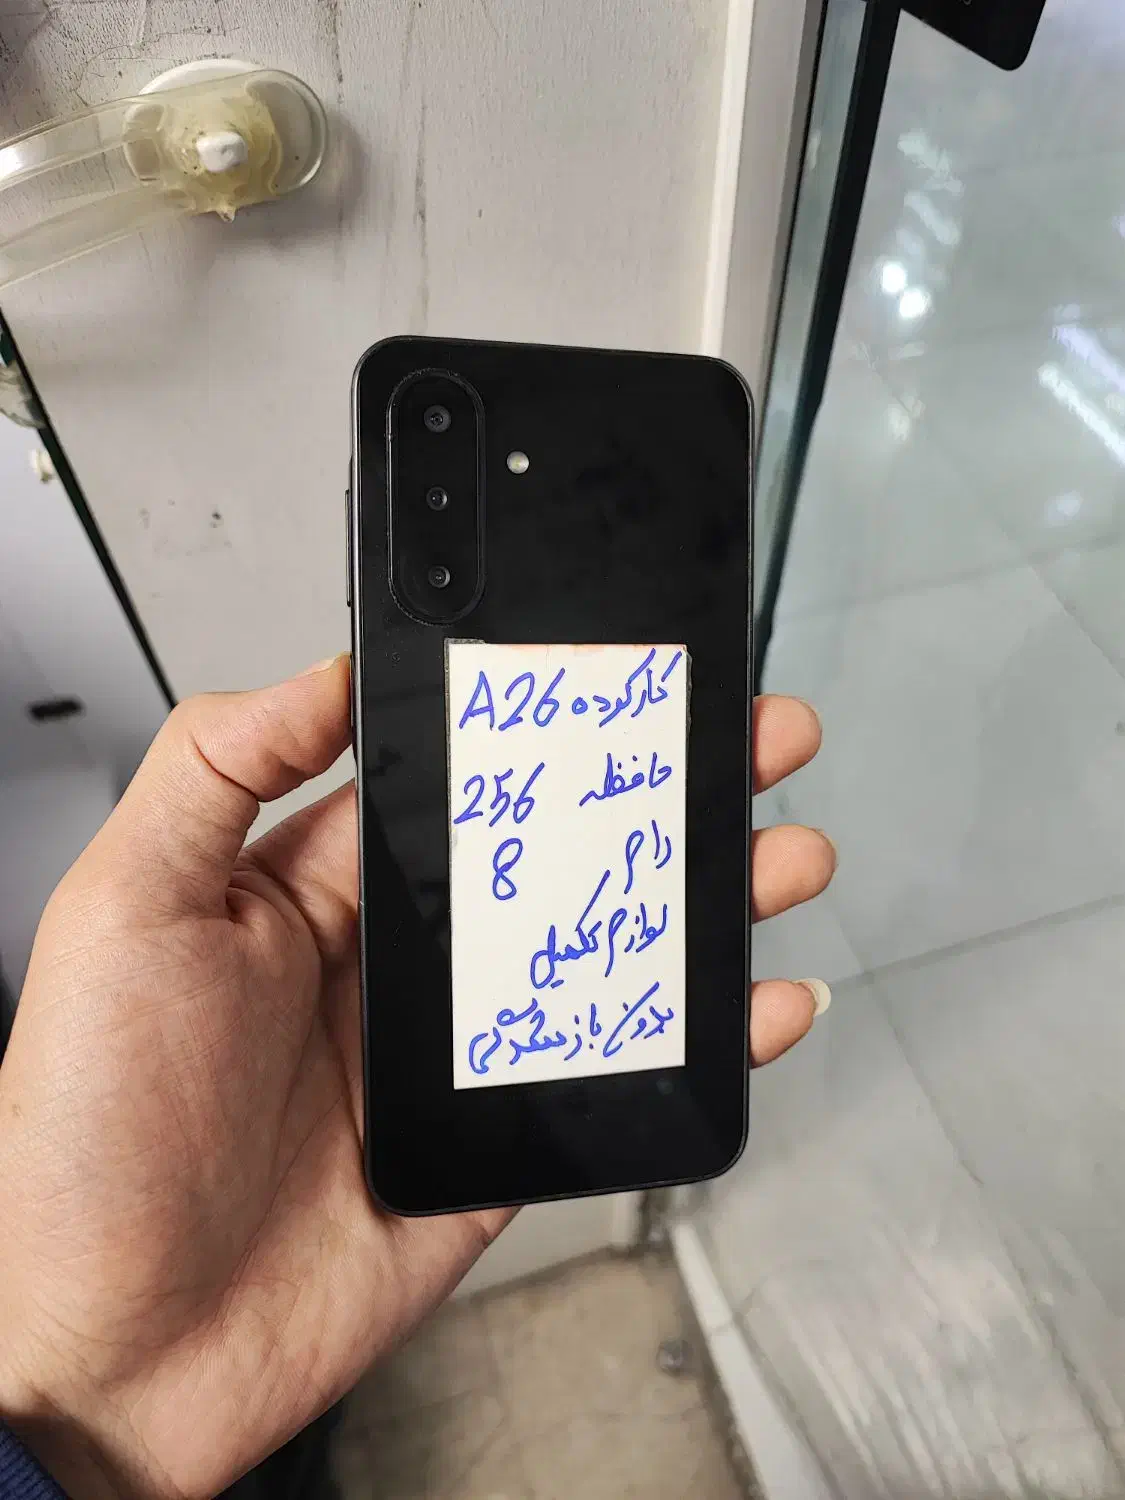 کارکرده A26
حافظه 256
رام 8
لوازم تکمیل
بدون بازشدگی